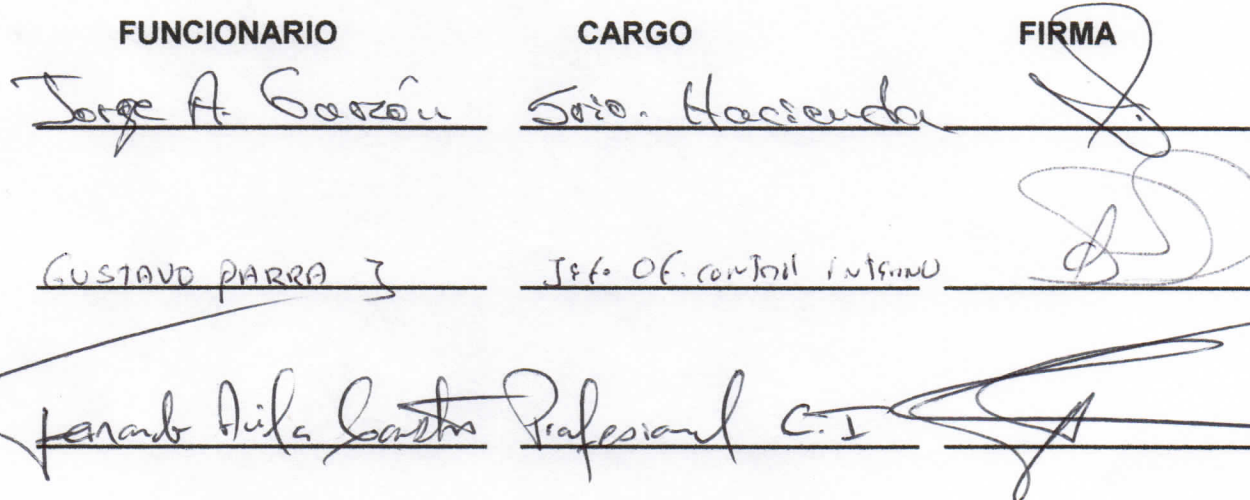 FUNCIONARIO CARGO FIRMA
Jorge A. Garzón Srio. Hacienda
GUSTAVO PARRA J Jefe OF. CONTROL INTERNO
Fernando Avila Castro Profesional C.I